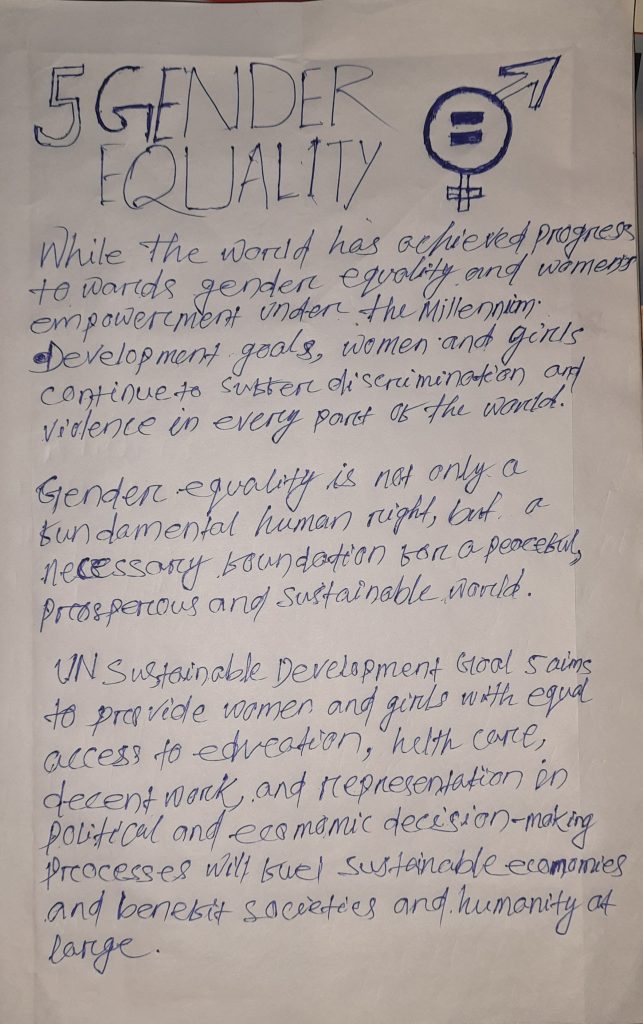 5 GENDER
EQUALITY
While the world has achieved progress
to wards gender equality and women's
empowerment under the Millennium
Development goals, women and girls
continue to suffer discrimination and
violence in every part of the world.
Gender equality is not only a
fundamental human right, but a
necessary foundation for a peaceful,
prosperous and sustainable world.
UN Sustainable Development Goal 5 aims
to provide women and girls with equal
access to education, helth care,
decent work, and representation in
political and economic decision-making
processes will fuel sustainable economies
and benefit societies and humanity at
large.